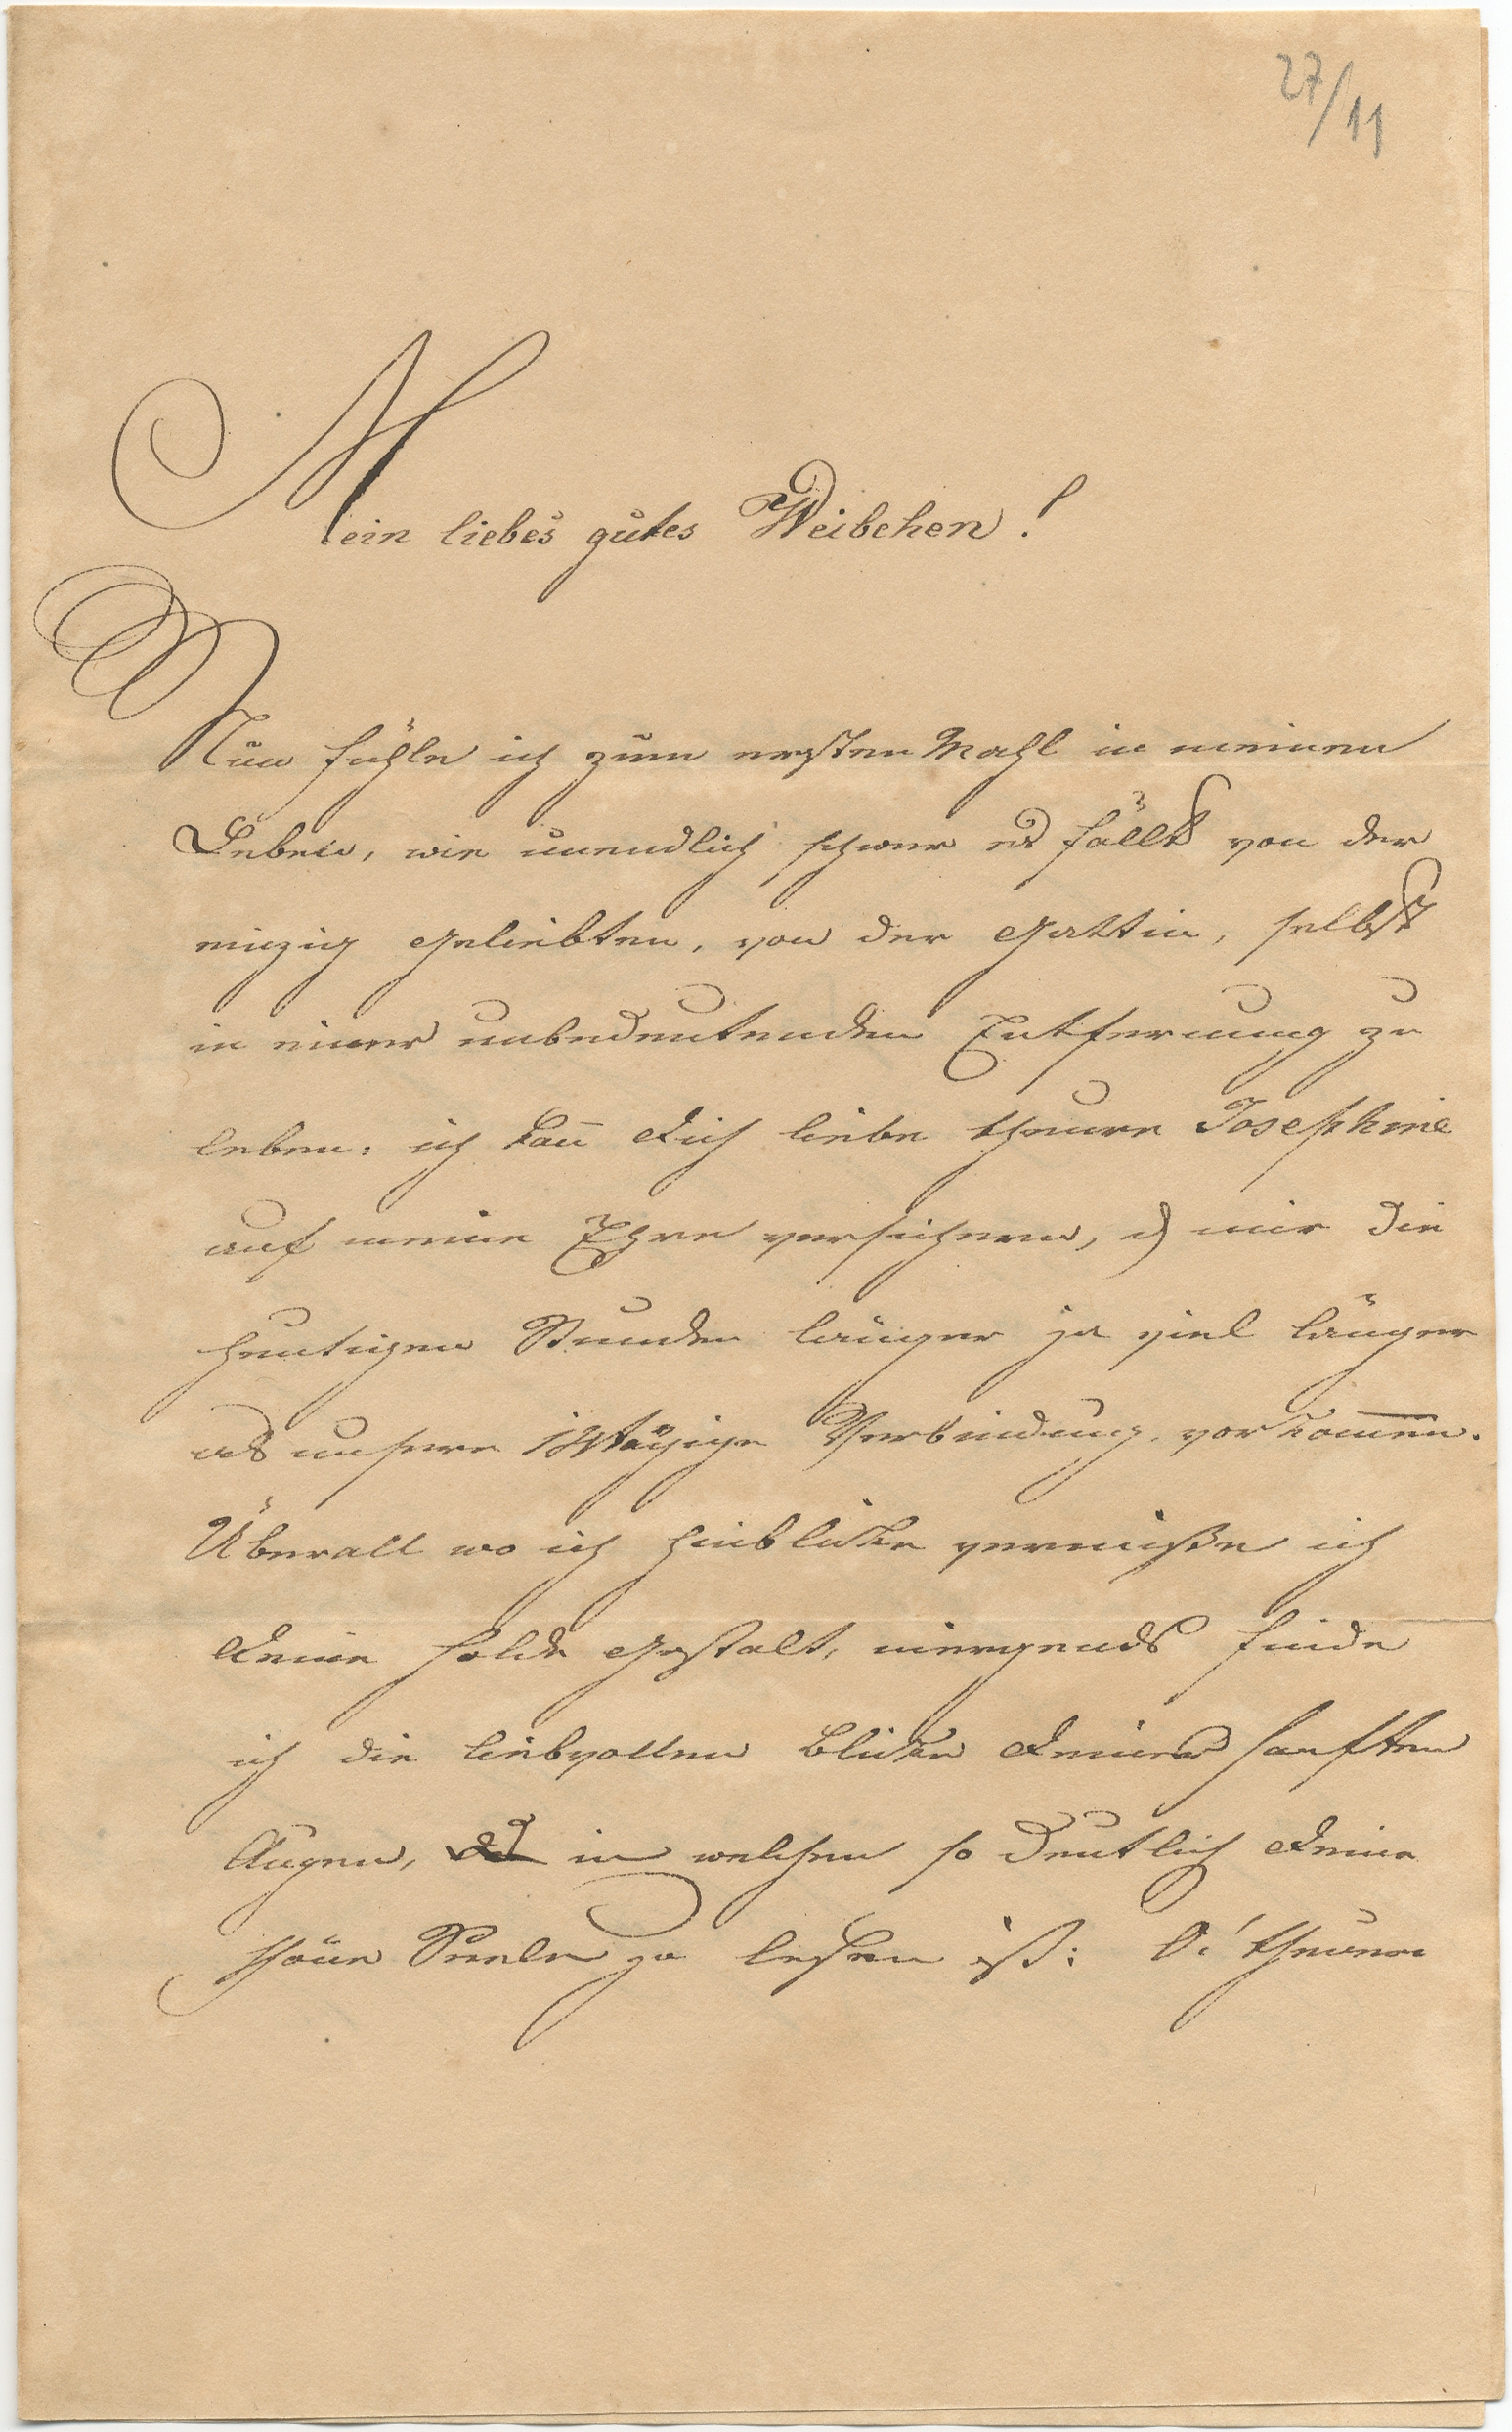 27/11
Mein liebes gutes Weibchen!
Nun fühle ich zum ersten Mahl in meinen
Leben, wie unendlich schwer es fällt von der
einzig Geliebten, von der Gattin, selbst
in einer unbedeutenden Entfernung zu
leben: ich kañ Dich liebe theure Josephine
auf meine Ehre versichern, mir die
heutigen Stunden länger ja viel länger
als unsere tägige Verbindung vorkom̄en.
Überall wo ich hinblicke vermiße ich
Deine holde Gestalt, niergends finde
ich die liebvollen Blicke Deiner sanften
Augen, in welchen so deutlich Deine
schöne Seele zu lesen ist: O! theuere